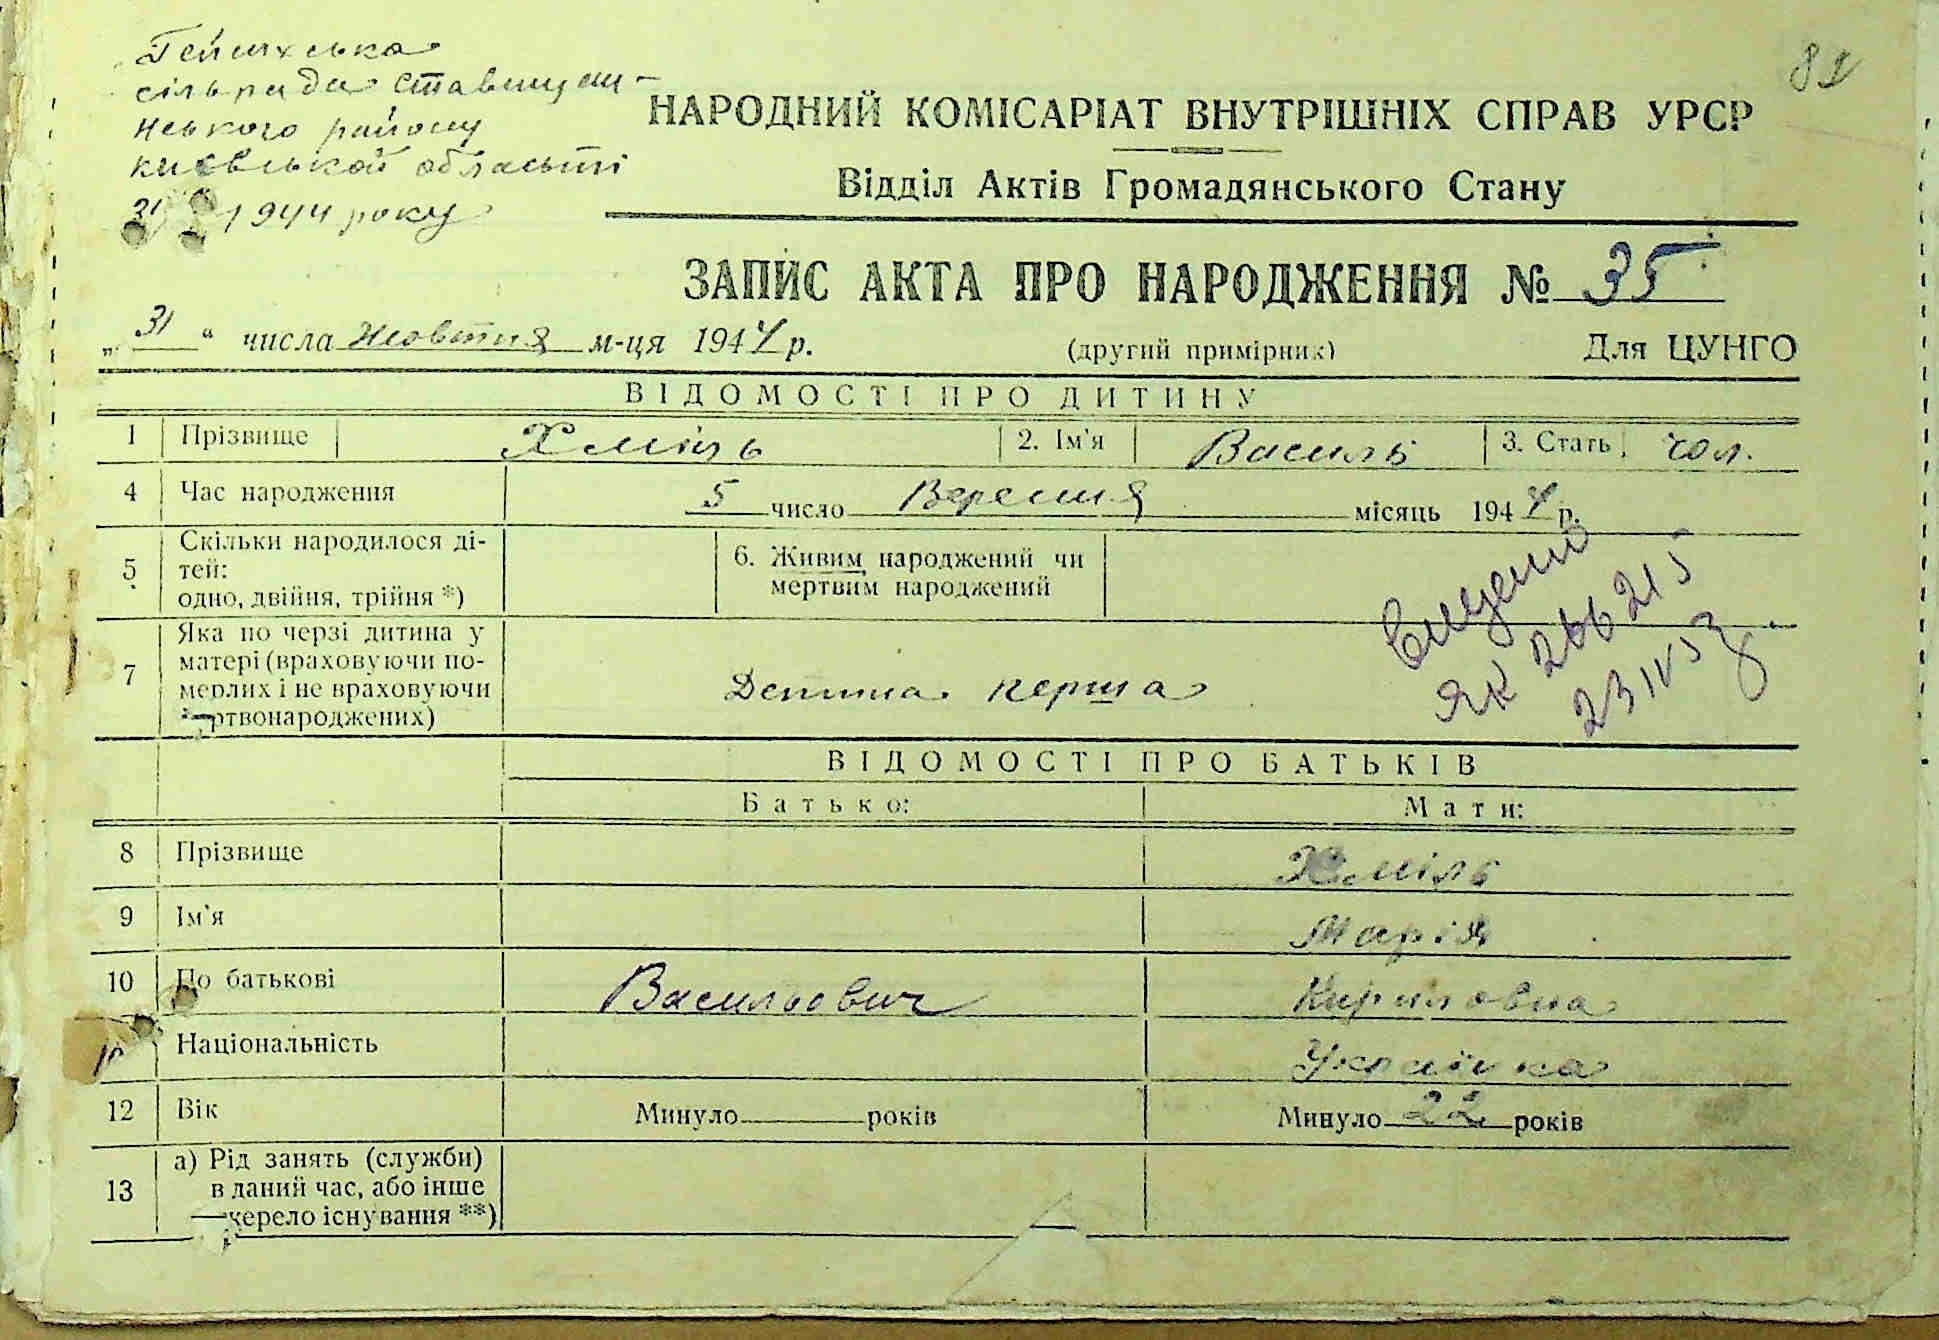 Гейсихська
сільрада Ставищан-
нського району
київської області
31 1944 року
82
НАРОДНИЙ КОМІСАРІАТ ВНУТРІШНІХ СПРАВ УРСР
Відділ Актів Громадянського Стану
ЗАПИС АКТА ПРО НАРОДЖЕННЯ № 35
„31“ числа Жовтня м-ця 1944 р. (другий примірник) Для ЦУНГО
ВІДОМОСТІ ПРО ДИТИНУ
1 Прізвище Хміль 2. Ім'я Василь 3. Стать чол.
4 Час народження 5 число Вересня місяць 1944 р.
5 Скільки народилося ді-
тей:
одно, двійня, трійня *)
6. Живим народжений чи
мертвим народжений
7 Яка по черзі дитина у
матері (враховуючи по-
мерлих і не враховуючи
мертвонароджених)
Детина перша
ЯК 266215
23 IV 53
ВІДОМОСТІ ПРО БАТЬКІВ
Батько: Мати:
8 Прізвище Хміль
9 Ім'я Марія
10 По батькові Васильович Кириловна
11 Національність Українка
12 Вік Минуло років Минуло 22 років
13 а) Рід занять (служби)
в даний час, або інше
джерело існування **)